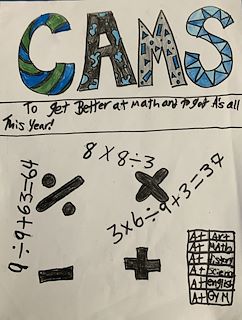 CAMS
To get Better at math and to get A's all
This Year!
8 X 8÷3
9÷9+63=64
3x6÷9+3=37
A+ Art
A+ Math
A+ history
A+ science
A+ english
A+ GYM